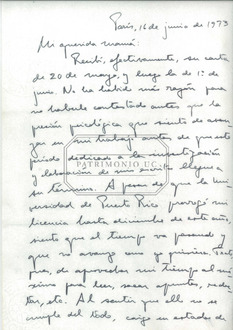 París, 16 de junio de 1973
Mi querida mamá:
Recibí, efectivamente, su carta
de 20 de mayo, y luego la de 1º de
junio. No ha habido más razón para
no haberle contestado antes que la
presión psicológica que siento de avan-
zar en mi trabajo antes de que este
período dedicado a la investigación
y elaboración de mi escrito llegue a
su término. A pesar de que la Uni-
versidad de Puerto Rico prorrogó mi
licencia hasta diciembre de este año,
siento que el tiempo va pasando y
que no avanzo como yo quisiera. Trato,
pues, de aprovechar mi tiempo al má-
ximo para leer, sacar apuntes, redac-
tar, etc. Al sentir que ello no se
cumple del todo, caigo en estados de
PATRIMONIO UC